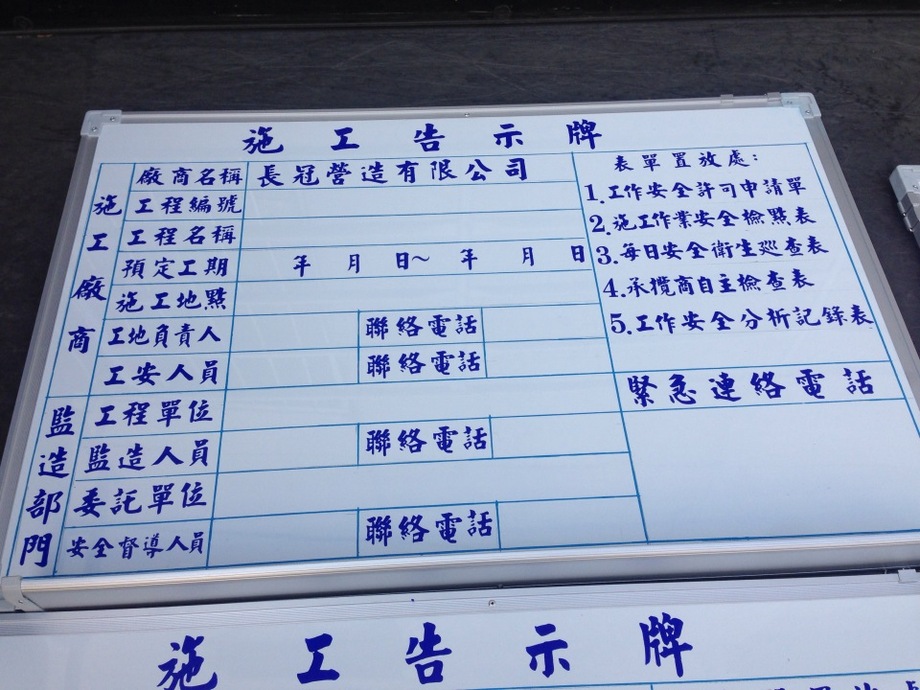 施工告示牌
施工廠商
廠商名稱 長冠營造有限公司
工程編號
工程名稱
預定工期 年 月 日~ 年 月 日
施工地點
工地負責人 聯絡電話
工安人員 聯絡電話
監造部門
工程單位
監造人員 聯絡電話
委託單位
安全督導人員 聯絡電話
表單置放處:
1.工作安全許可申請單
2.施工作業安全檢點表
3.每日安全衛生巡查表
4.承攬商自主檢查表
5.工作安全分析記錄表
緊急連絡電話
施工告示牌